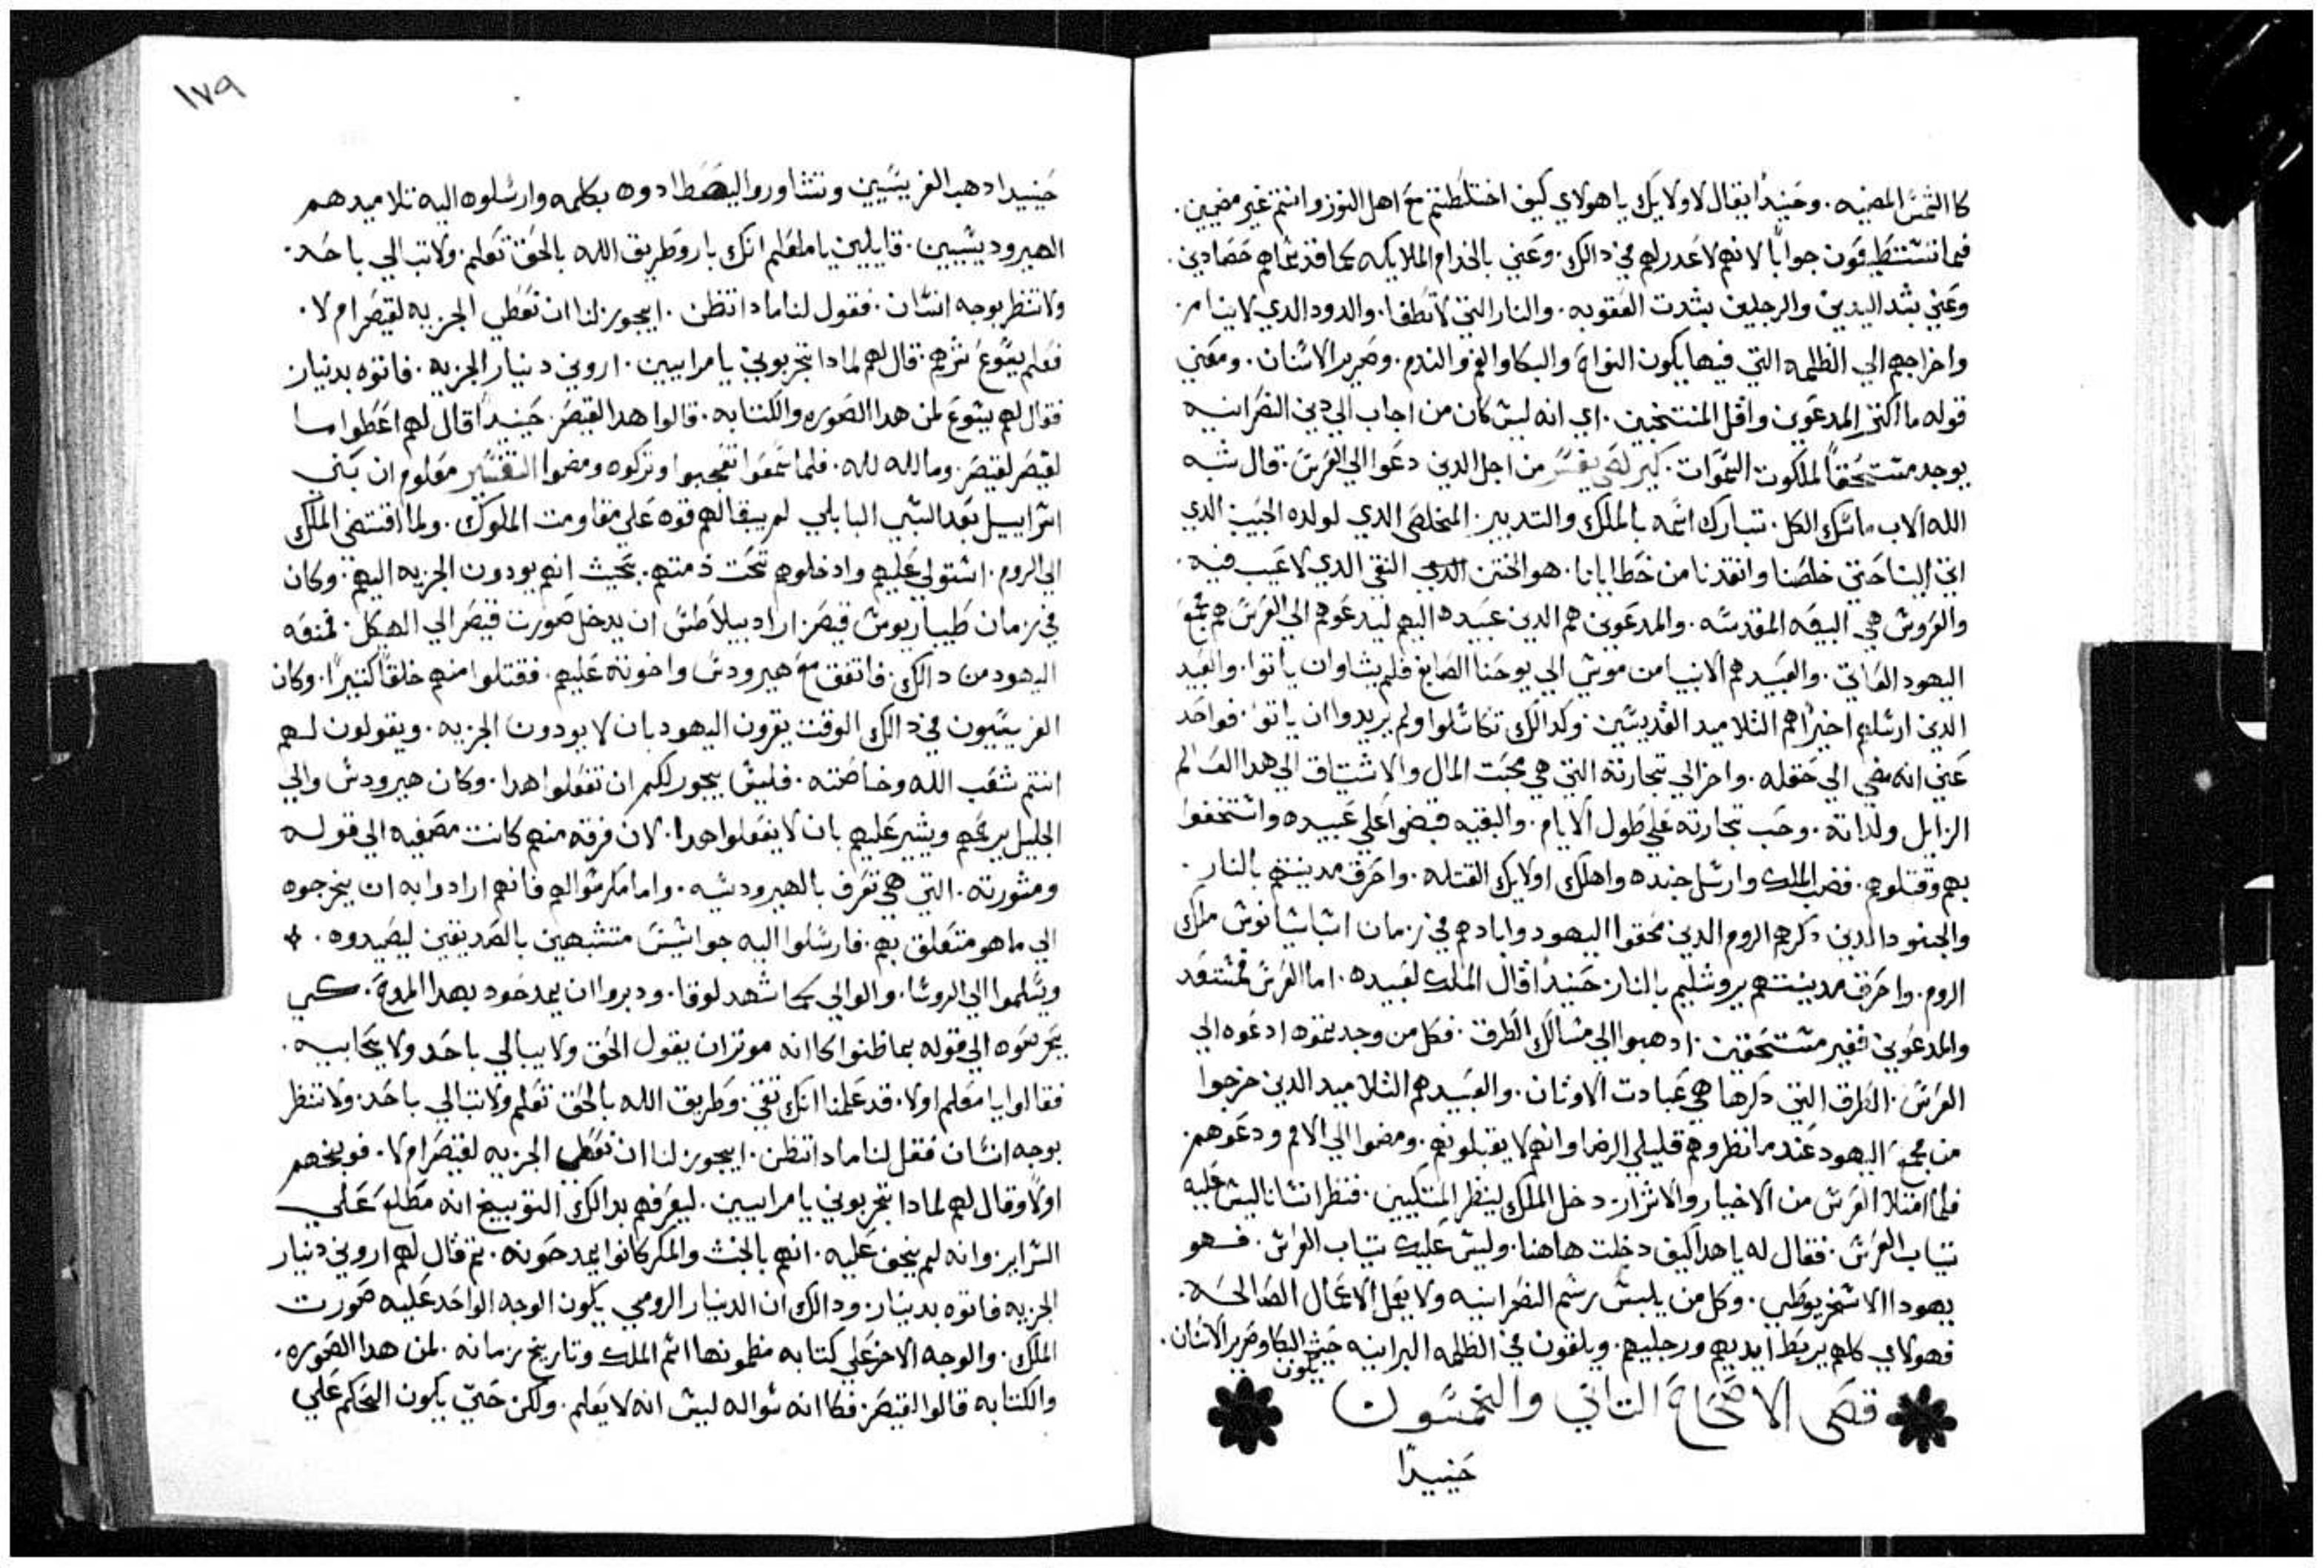 كا الشمس المضيه. وحَينيدًا يقال لاولايَك يا هولاي كيف اختلطتم مَع اهل النور وانتم غير مضيين.
فما تستَطيعَون جوابًا لانهم لا عَدر لهم في دالك. وعَني بالخدام الملايكه كما قد سَماهم حَصَادين.
وعَني بشد اليدين والرجلين بشدت العَقوبه. والنار التي لا تطفا. والدود الدي لا ينام.
واخراجهم الي الظلمه التي فيها يكون النواح والبكا والغم والندم. وصَرير الاسَنان. ومعَني
قوله ما اكتر المدعَوين واقل المنتخبين. اي انه ليس كل من اجاب الي دين النصَرانيه
يوجد مستحَقًا لملكوت السَموات. من اجل الدين دعَوا الي العَرسَ. قال شبه
الله الاب ماسَك الكل. تبارك اسَمه بالملك والتدبير. المخلصَ الدي لولده الحَبيب الدي
اتي الينا حَتي خلصَنا وانقدنا من خطايانا. هو الختن الدي النقي الدي لا عَيب فيه.
والعَروسَ هي البيعَه المقدسَه. والمدعَوين هم الدين عَبيده اليهم ليدعَوهم الي العَرسَ هم جمَع
اليهود العَاتي. والعَبيد هم الانبيا من موسي الي يوحَنا الصَابغ فلم يشاوا ان ياتوا. والعَبيد
الدين ارسَلهم اخيرًا هم التلاميد القديسَين. وكدالك تكاسَلوا ولم يريدوا ان ياتوا. فواحَد
عَني انه مضي الي حَقله. واخر الي تجارته التي هي محَبت المال والاشتياق الي هدا العَالم
الزايل ولداته. وحَب تجارته عَلي طول الايام. والبقيه قبضوا عَلي عَبيده واستخفوا
بهم وقتلوهم. فغضب الملك وارسَل جنده واهلك اولايك القتله. واحَرق مدينتهم بالنار.
والجنود الدين دكرهم الروم الدين محَقوا اليهود وابادهم في زمان اسباسيانوس ملك
الروم. واحَرق مدينتهم يروشليم بالنار. حَينيدًا قال الملك لعَبيده. اما العَرسَ فمستعَد
والمدعَوين فغير مستحَقين. ادهبوا الي مسَالك الطرق. فكل من وجدتموه ادعَوه الي
العَرسَ. الطرق التي دكرها هي عَبادت الاوثان. والعَبيد هم التلاميد الدين خرجوا
من مجمعَ اليهود عَندما نظروهم قليلي الرضا وانهم لا يقبلونهم. ومضوا الي الامم ودعَوهم.
فلما امتلا العَرسَ من الاخيار والاشرار. دخل الملك لينظر المتكيين. فنظر انسَانا ليس عَليه
تياب العَرسَ. فقال له يا هدا كيف دخلت هاهنا. وليسَ عَليك تياب العَرسَ. فهو
يهودا الاسَخريوطي. وكل من يلبسَ رسَم النصَرانيه ولا يعَمل الاعَمال الصَالحَه.
فهولاي كلهم يربط ايديهم ورجليهم. ويلقون في الظلمه البرانيه حَيث يكون البكا وصَرير الاسَنان.
قصَي الاصَحَاحَ التاني والخمسَون
حَينيدًا
١٧٩
حَينيدا دهب الفريسَيين وتشاوروا ليصَطادوه بكلمه وارسَلوه اليه تلاميدهم
الهيروديسَيين. قايلين يا معَلم انك بار وطريق الله بالحَق تعَلم. ولا تبالي باحَد.
ولا تنظر بوجه انسَان. فقول لنا مادا تظن. ايجوز لنا ان نعَطي الجزيه لقيصَر ام لا.
فعَلم يسَوعَ شرهم. قال لهم لمادا تجربوني يا مراييين. اروني دينار الجزيه. فاتوه بدينار
فقال لهم يسَوعَ لمن هدا الصَوره والكتابه. قالوا هدا لقيصَر. حَينيدًا قال لهم اعَطوا ما
لقيصَر لقيصَر. وما لله لله. فلما سَمعَوا تعَجبوا وتركوه ومضوا التفسَير معَلوم ان بَني
اسَراييل بعَد السَبي البابلي لم يبقا لهم قوه عَلي مقاومت الملوك. ولما افتضي الملك
الي الروم. اسَتولي عَليهم وادخلوهم تحَت ذمتهم. بحَيث انهم يودون الجزيه اليهم. وكان
في زمان طيباريوسَ قيصَر. اراد بيلاطسَ ان يدخل صَورت قيصَر الي الهيكل. فمنعَه
اليهود من دالك. فاتفق معَ هيرودسَ واخوته عَليهم. فقتلوا منهم خلقًا كتيرًا. وكان
الفريسَيون في دالك الوقت يقرون اليهود بان لا يودون الجزيه. ويقولون لهم
انتم شعَب الله وخاصَته. فليسَ يجوز لكم ان تفعَلوا هدا. وكان هيرودسَ والي
الجليل يرعَهم ويشير عَليهم بان لا يفعَلوا هدا. لان فرقه منهم كانت مصَغيه الي قوله
ومشورته. التي هي تعَرف بالهيروديسَه. واما مكر سَوالهم فانهم ارادوا به ان يخرجوه
الي ما هو متعَلق بهم. فارسَلوا اليه جواسَيسَ متشبهين بالصَديقين ليصَيدوه.
ويسَلموا الي الروسَا. والوالي كما شهد لوقا. ودبروا ان يمدحَوه بهدا المدحَ. كي
يجرعَوه الي قوله بما ظنوا كانه موتران يقول الحَق ولا يبالي باحَد ولا يحَابيه.
فقالوا يا معَلم اولا. قد عَلمنا انك تقي. وطريق الله بالحَق تعَلم ولا تبالي باحَد. ولا تنظر
بوجه انسَان فقل لنا مادا تظن. ايجوز لنا ان نعَطي الجزيه لقيصَر ام لا. فوبخهم
اولًا وقال لهم لمادا تجربوني يا مراييين. ليعَرفهم بدالك التوبيخ انه مطلعَ عَلي
السَراير. وانه لم يخف عَليه. انهم بالخبث والمكر كانوا يمدحَونه. تم قال لهم اروني دينار
الجزيه فاتوه بدينار. ودالك ان الدينار الرومي يكون الوجه الواحَد عَليه صَورت
الملك. والوجه الاخر عَلي كتابه مظمونها اسَم الملك وتاريخ زمانه. لمن هدا الصَوره.
والكتابه قالوا لقيصَر. فكا انه سَواله ليسَ انه لا يعَلم. ولكن حَتي يكون الحَكم عَلي